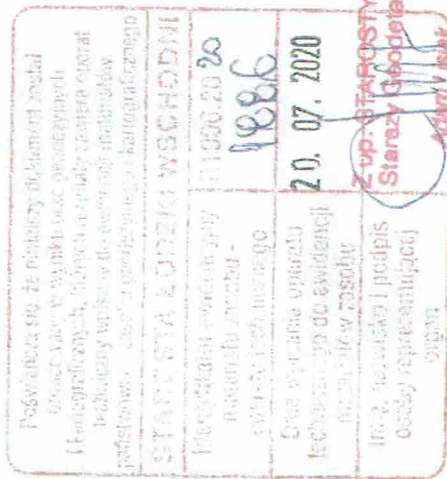 Poświadcza się, że niniejszy dokument został
opracowany w wyniku prac geodezyjnych
i kartograficznych, których rezultaty zawiera operat
techniczny wpisany do ewidencji materiałów
państwowego zasobu geodezyjnego i kartograficznego
STAROSTA ŁÓDZKI WSCHODNI
Identyfikator ewidencyjny
materiału zasobu -
operatu technicznego
20 20
1886
Data wpisania operatu
technicznego do ewidencji
materiałów zasobu
20. 07. 2020
Imię, nazwisko i podpis
osoby reprezentującej
organ
Z up. STAROSTY
Starszy Geodeta